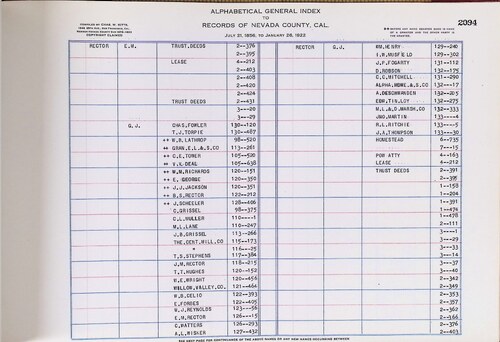 ALPHABETICAL GENERAL INDEX
TO
RECORDS OF NEVADA COUNTY, CAL.
JULY 21, 1856, TO JANUARY 28, 1933
2094
COPYRIGHT CLAIMED
RECTOR E.M. TRUST.DEEDS 2—376
2—395
LEASE 4—212
2—403
2—408
2—420
2—424
TRUST DEEDS 2—431
3—20
3—29
G.J. CHAS.FOWLER 130—120
T.J.TORPIE 130—487
++ W.B.LATHROP 98—520
++ GRAN.E.L.&S.CO 113—261
++ C.E.TOWER 105—520
++ V.K.DEAL 105—638
++ W.M.RICHARDS 120—151
++ E. GEORGE 120—350
++ J.J.JACKSON 120—351
++ B.S.RECTOR 122—212
J.SCHEELER 128—406
C.GRISSEL 98—375
C.L.MULLER 110—-1
M.L.LANE 110—247
J.B.GRISSEL 113—266
THE.CENT.MILL.CO 115—173
" 116—25
T.S.STEPHENS 117—384
J.M.RECTOR 118—215
T.T.HUGHES 120—152
W.E.WRIGHT 120—456
WILLOW.VALLEY.CO. 121—464
W.B.CELIO 122—393
E.FORBES 122—405
W.J.REYNOLDS 123—56
E.M.RECTOR 126—15
C.WATTERS 126—293
A.L.WISKER 127—432
RECTOR G.J. WM.HENRY 129—240
I.W.MUSFIELD 129—302
J.F.FOGARTY 131—112
D.ROBSON 132—175
C.C.MITCHELL 131—290
ALPHA.HDWE.&S.CO 132—17
A.DESCHWANDEN 132—205
EDW.TIN.LOY 132—275
M.L.&D.MARSH.CO 132—333
JNO.MARTIN 133—-4
R.L.RITCHIE 133—-5
J.A.THOMPSON 133—30
HOMESTEAD 6—735
7—15
POW ATTY 4—163
LEASE 4—212
TRUST DEEDS 2—391
2—395
1—158
1—204
1—391
1—474
1—478
2—111
3—-1
3—29
3—33
3—14
3—37
3—40
2—342
2—349
2—353
2—357
2—362
2—366
2—376
2—403
SEE NEXT PAGE FOR CONTINUANCE OF THE ABOVE NAMES OR ANY NEW NAMES OCCURRING BETWEEN